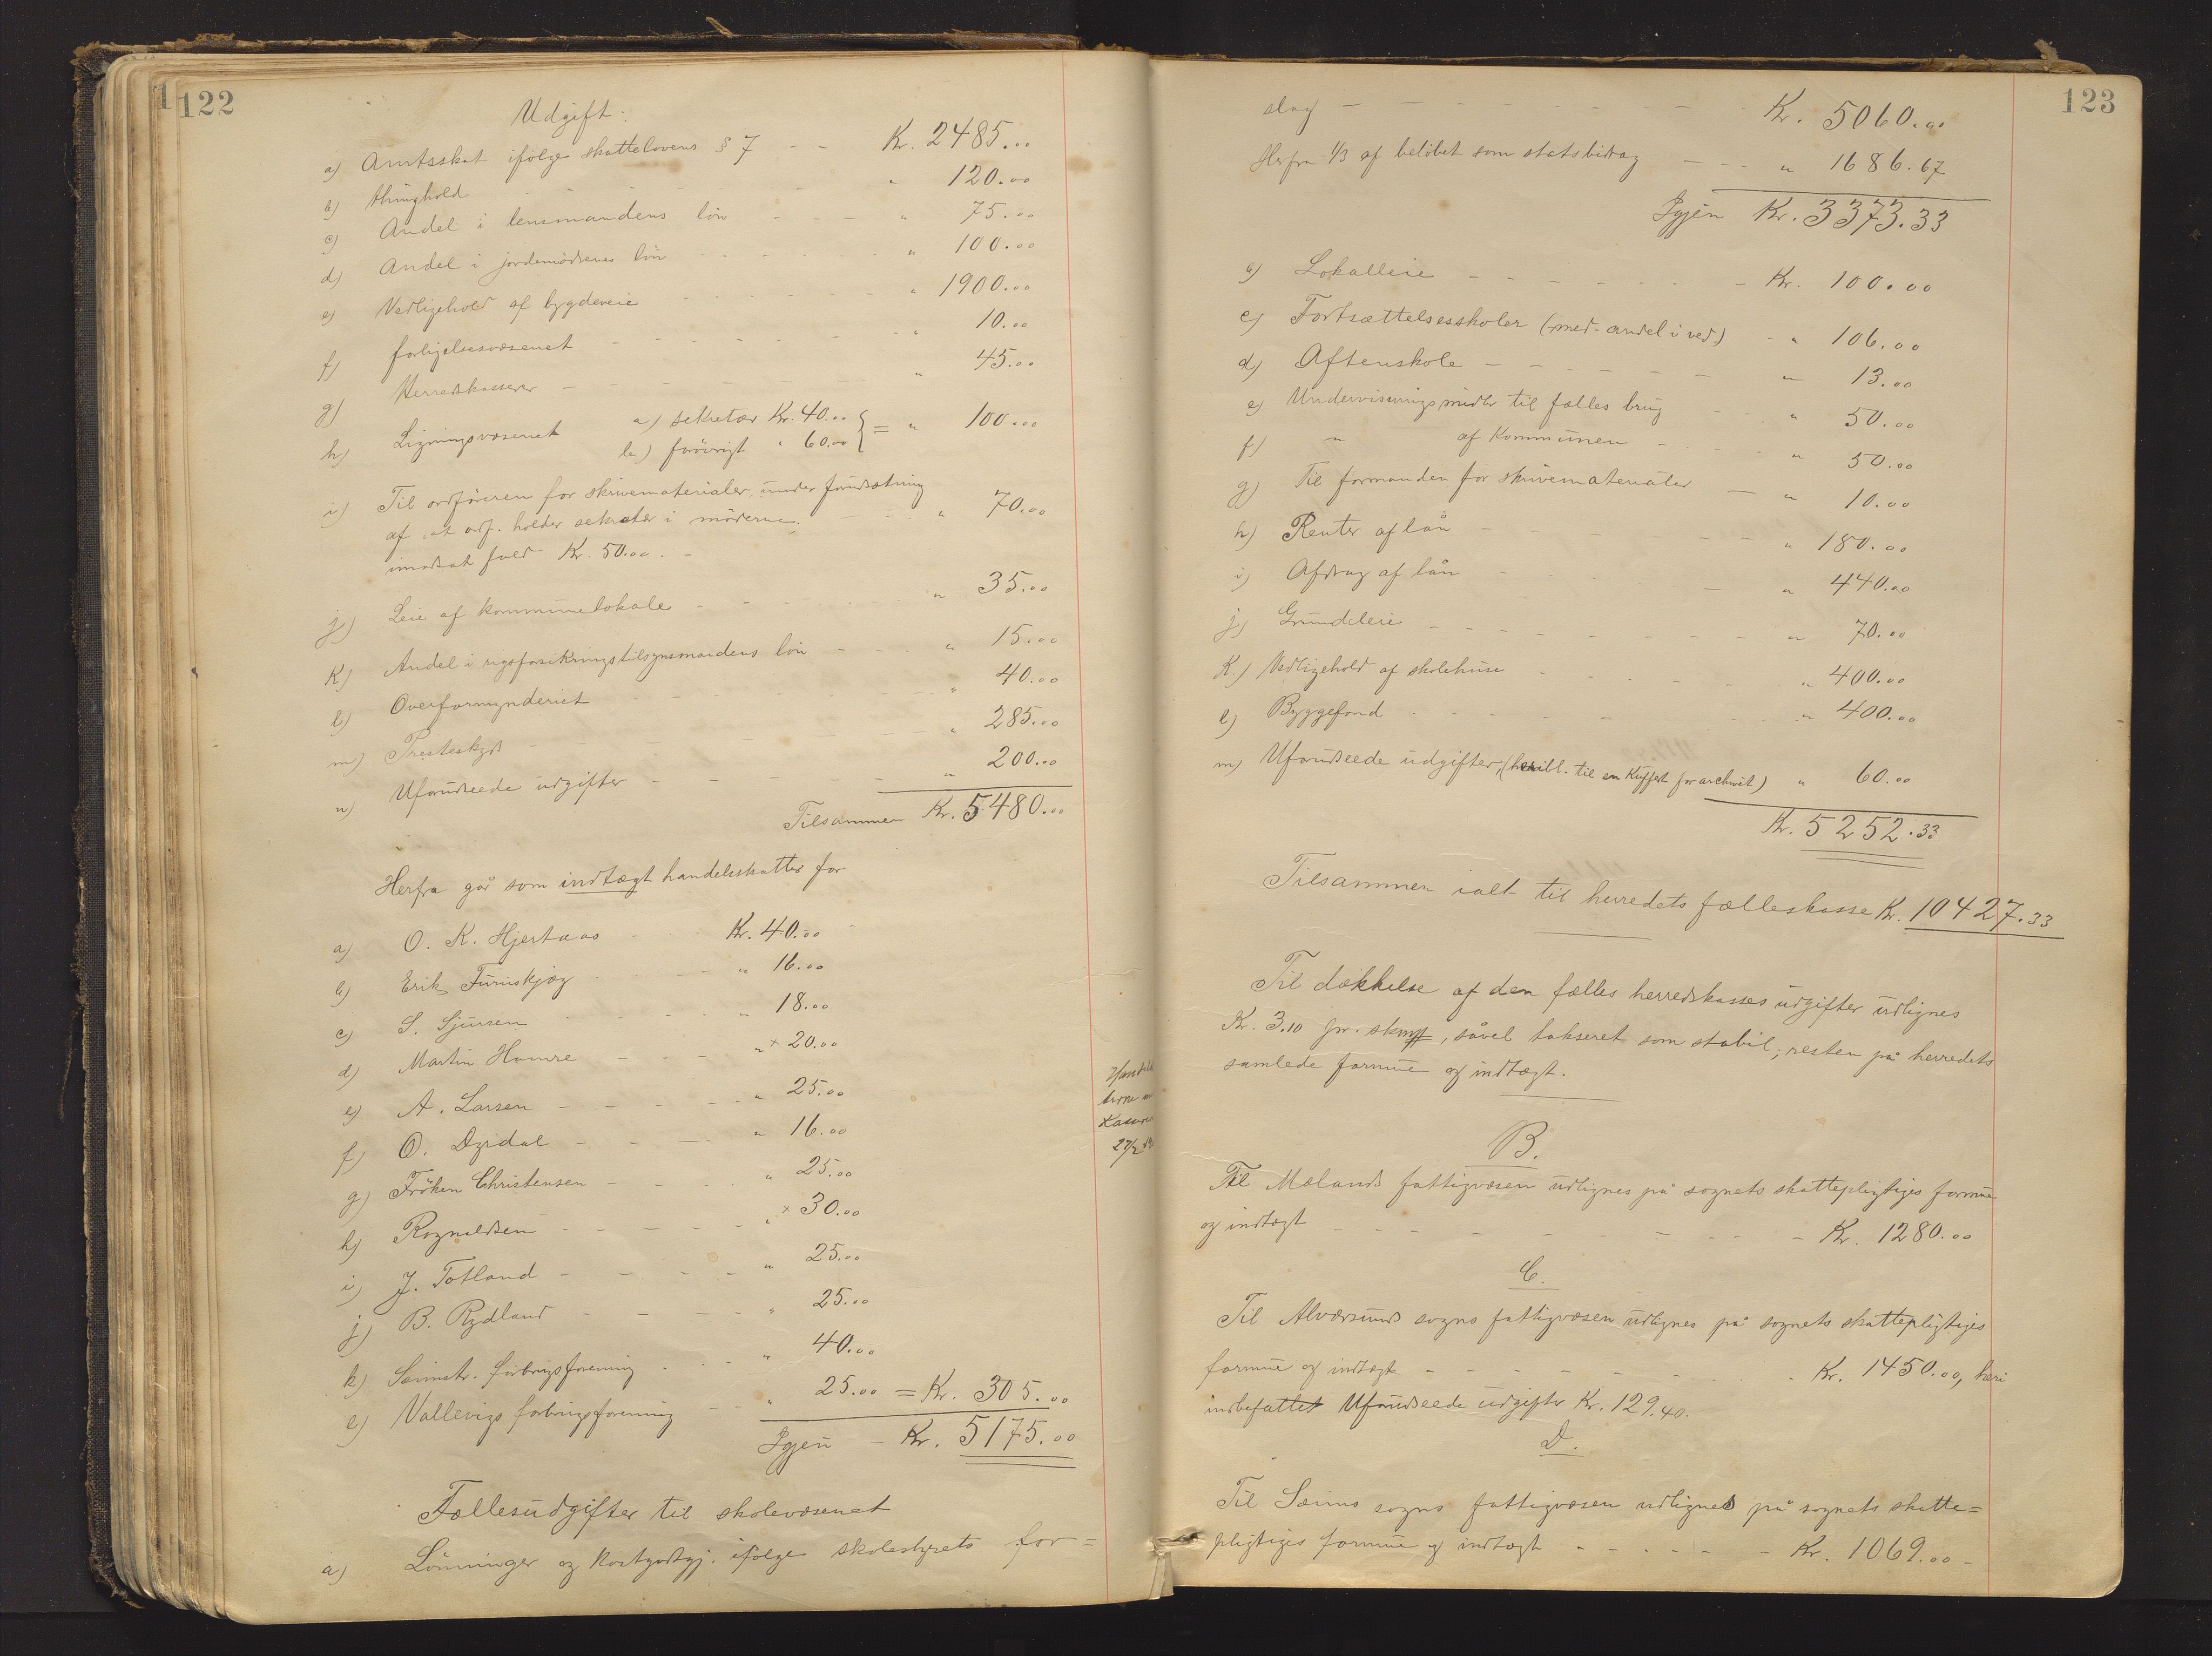 122
Udgift:
a) Amtsskat ifölge skattelovens § 7 - - Kr. 2485...
b) thinghold - - - - - " 120.00
c) Andel i lensmandens lön - - - " 75.00
d) Andel i jordemödrenes lön - - - - " 100.00
e) Vedligehold af bygdeveie - - - - - " 1900.00
f) forligelsesvæsenet - - - - - " 10.00
g) Herredskasserer - - - - - " 45.00
h) Ligningsvæsenet a) sekretær Kr. 40.00
b) forövrigt " 60.00 } = " 100.00
i) Til ordföreren for skrivematerialer, under forudsætning
af at ordf. holder sekretær i möderne, - - " 70.00
modsat fald Kr. 50.00. -
j) Leie af kommunelokale - - - - - " 35.00
k) Andel i tilsynsmandens lön - - - " 15.00
l) Overformynderiet - - - - - " 40.00
m) Presteskyds - - - - - " 285.00
n) Uforudseede udgifter - - - - - " 200.00
Tilsammen Kr. 5480.00
Herfra går som indtægt handelsskatter for
a) O. K. Hjertaas - Kr. 40.00
b) Erik Furuskjæg - - - " 16.00
c) S. Sjursen - - - - - 18.00
d) Martin Hamre - - - " + 20.00
e) A. Larsen - - - - - " 25.00
f) O. Dyrdal - - - - " 16.00
g) Fröken Christensen - - - " 25.00
h) Rognaldsen - - - - - " + 30.00
i) J. Totland - - - - - " 25.00
j) B. Rydland - - - - - " 25.00
k) Seimstr. forbrugsforening - - - " 40.00
l) Vallevigs forbrugsforening - - " 25.00 = Kr. 305.00
Igjen - Kr. 5175.00
Fællesudgifter til skolevæsenet
a) Lönninger og kostgodtgj. ifölge skolestyrets for=
123
slag - - - - - - - - Kr. 5060.00
Herfra 1/3 af belöbet som statsbidrag - - - " 1686.67
Igjen Kr. 3373.33
b) Lokalleie - - - - - - - - Kr. 100.00
c) Fortsættelsesskoler (med andel i ved) - " 106.00
d) Aftenskole - - - - - - - " 13.00
e) Undervisningsmidler til fælles brug - - " 50.00
f) " af kommunen - - - " 50.00
g) Til formanden for skrivematerialer - " 10.00
h) Renter af lån - - - - - - - " 180.00
i) Afdrag af lån - - - - - " 440.00
j) Grundleie - - - - - - - - - " 70.00
k.) Vedligehold af skolehuse - - - - - " 400.00
l) Byggefond - - - - - - " 400.00
m) Uforudseede udgifter, (heribl. til en kuffert for archivet) " 60.00
Kr. 5252.33
Tilsammen ialt til herredets fælleskasse Kr. 10427.33
Til dækkelse af den fælles herredskasses udgifter udlignes
Kr. 3.10 pr. skm, såvel takseret som stabil; resten på herredets
samlede formue og indtægt.
B.
Til Mælands fattigvæsen udlignes på sognets skattepligtiges formue
og indtægt - - - - - - - - - Kr. 1280.00
C.
Til Alværsunds sogns fattigvæsen udlignes på sognets skattepligtiges
formue og indtægt - - - - - - - Kr. 1450.00, heri
indbefattet Uforudseede udgifter Kr. 129.40.
D.
Til Seims sogns fattigvæsen udlignes på sognets skatte=
pligtiges formue og indtægt - - - - - - Kr. 1069.00 -